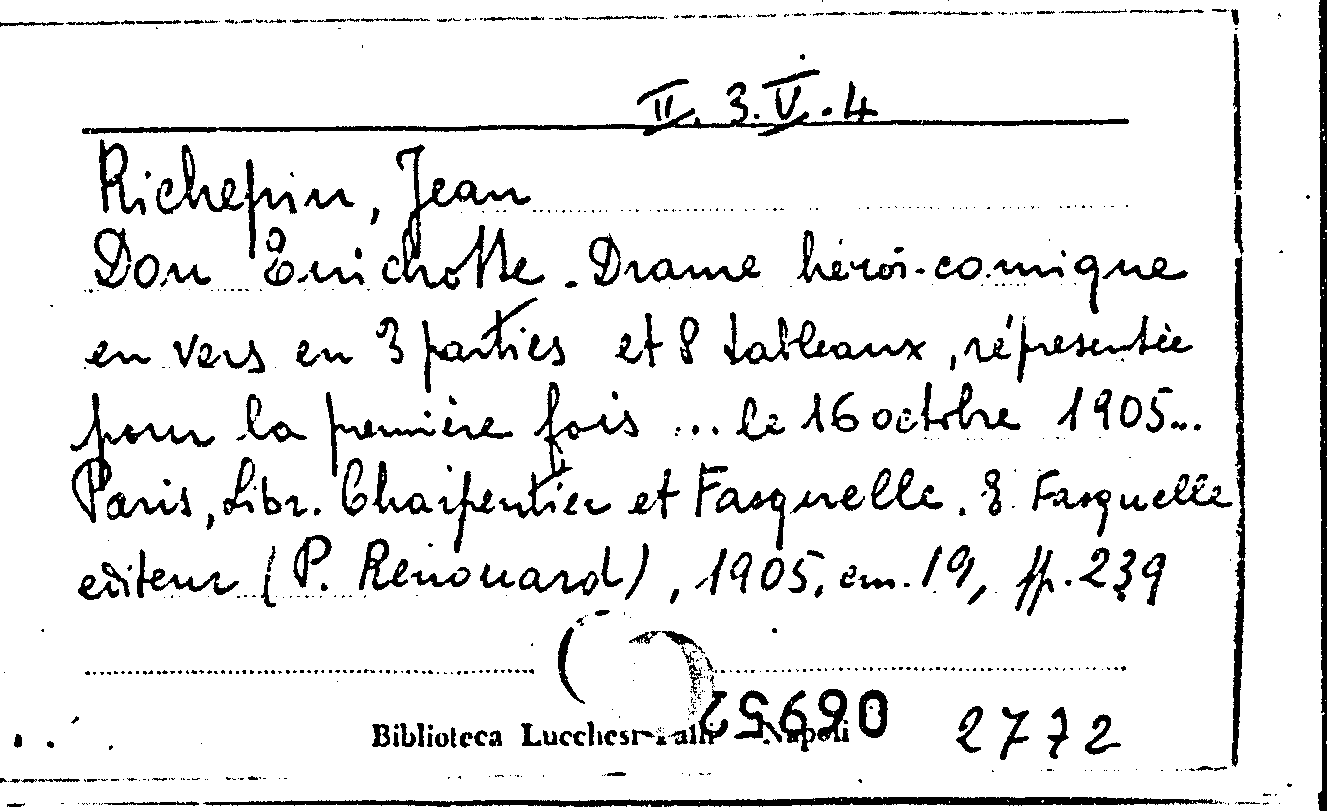 II. 3. V. 4
Richepin, Jean
Don Quichotte. Drame héroi-comique
en vers en 3 parties et 8 tableaux, répresentée
pour la première fois ... le 16 octobre 1905...
Paris, Libr. Charpentier et Fasquelle. E. Fasquelle
editeur (P. Renouard), 1905, cm. 19, pp. 239
Biblioteca Lucchesi-Palli Napoli
2772